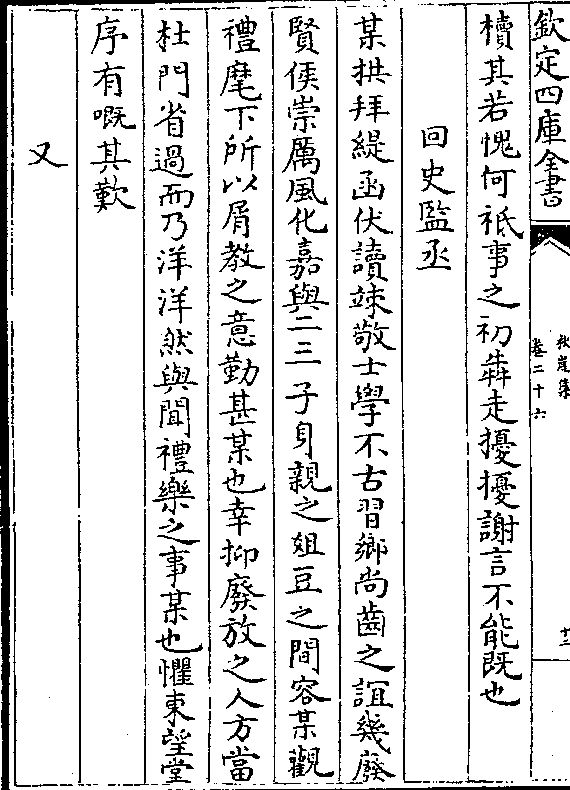 欽定四庫全書
秋崖集
卷二十六
十二
櫝其若愧何祗事之初犇走擾擾謝言不能既也
回史監丞
某拱拜緹函伏讀竦敬士學不古習鄉尚齒之誼幾廢
賢侯崇厲風化嘉與二三子身親之俎豆之間容某觀
禮麾下所以屑教之意勤甚某也幸抑廢放之人方當
杜門省過而乃洋洋然與聞禮樂之事某也懼東望堂
序有嘅其歎
又